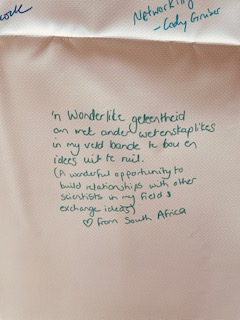 Networking
- Cody Gruber
'n Wonderlike geleentheid
om met ander wetenskaplikes
in my veld bande te bou en
idees uit te ruil.
(A wonderful opportunity to
build relationships with other
scientists in my field &
exchange ideas)
♡ from South Africa